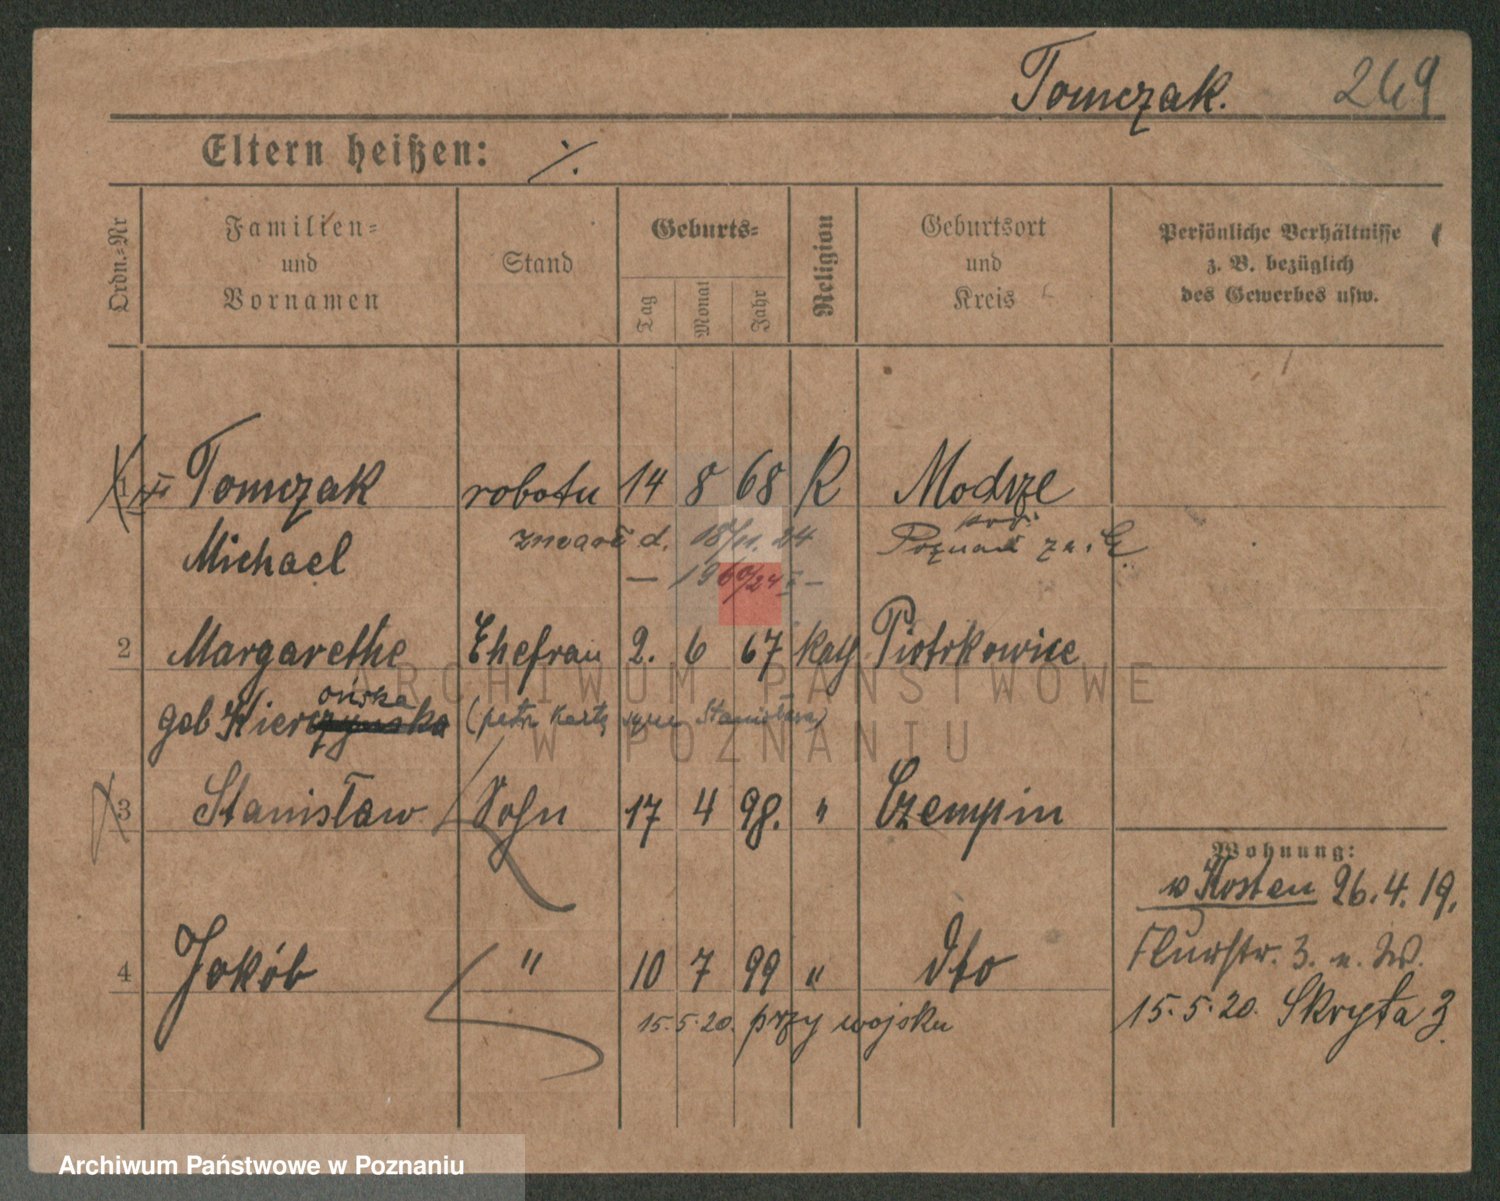 Tomczak. 249
Eltern heißen: ⁒
Ordn.=Nr
Familien=
und
Vornamen
Stand
Geburts=
Tag
Monat
Jahr
Religion
Geburtsort
und
Kreis
Persönliche Verhältnisse
z. B. bezüglich
des Gewerbes usw.
1 Tomczak robotn 14 8 68 R Modrze
Michael zmarł d. 18/11. 24 Poznań
— 1960/24 —
2 Margarethe Ehefrau 2. 6 67 kath Piotrkowice
ońska
geb Kierczynska (patrz kartę syna Stanisława)
3 Stanisław Sohn 17 4 98. " Czempin
Wohnung:
v Kosten 26.4.19.
Flurstr. 3.
4 Jakób " 10 7 99 " dto
15.5.20. Skryta 3.
15.5.20. przy wojsku
ARCHIWUM PAŃSTWOWE
W POZNANIU
Archiwum Państwowe w Poznaniu